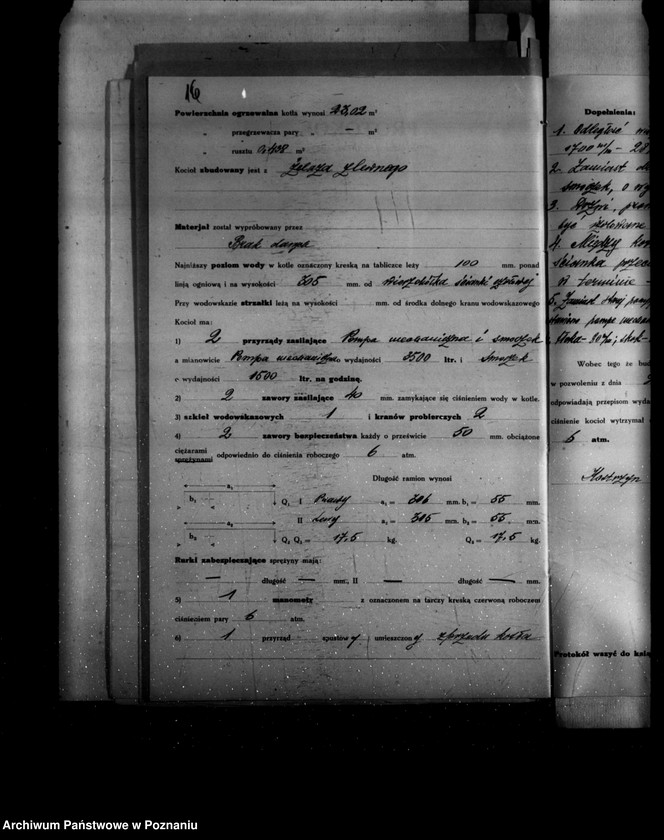 16
Powierzchnia ogrzewalna kotła wynosi 23,02 m²
„ przegrzewacza pary „ — m²
„ rusztu 0,408 m²
Kocioł zbudowany jest z żelaza zlewnego
Materjał został wypróbowany przez
Brak danych
Najniższy poziom wody w kotle oznaczony kreską na tabliczce leży 100 mm. ponad
linją ogniową i na wysokości 305 mm. od wierzchołka ścianki
Przy wodowskazie strzałki leżą na wysokości mm. od środka dolnego kranu wodowskazowego
Kocioł ma:
1) 2 przyrządy zasilające Pompa mechaniczna i smoczek
a mianowicie Pompa mechaniczna o wydajności 3500 ltr. i Smoczek
o wydajności 1500 ltr. na godzinę.
2) 2 zawory zasilające 40 mm. zamykające się ciśnieniem wody w kotle.
3) szkieł wodowskazowych 1 i kranów probierczych 2
4) 2 zawory bezpieczeństwa każdy o prześwicie 50 mm. obciążone
ciężarami
sprężynami odpowiednio do ciśnienia roboczego 6 atm.
Długość ramion wynosi
a₁
b₁ Q₁ I Prawy a₁ = 306 mm. b₁ = 55 mm.
a₂ II Lewy a₂ = 305 mm. b₂ = 55 mm.
b₂ Q₂ Q₁ = 17,5 kg. Q₂ = 17,5 kg.
Rurki zabezpieczające sprężyny mają:
— długość — mm., II — długość — mm.
5) 1 manometr z oznaczonem na tarczy kreską czerwoną roboczem
ciśnieniem pary 6 atm.
6) 1 przyrząd spustowy umieszczony z przodu kotła
Dopełnienia:
1. Odległość
1700 m/m - 28
2. Zamiast
smoczek, o
3.
być
4. Między
ścianka
w terminie -
5. Zamiast
pompa
Wobec tego że
w pozwoleniu z dnia
odpowiadają przepisom
ciśnienie kocioł wytrzymał
6 atm.
Kostrzyn
Protokół wszyć do
Archiwum Państwowe w Poznaniu